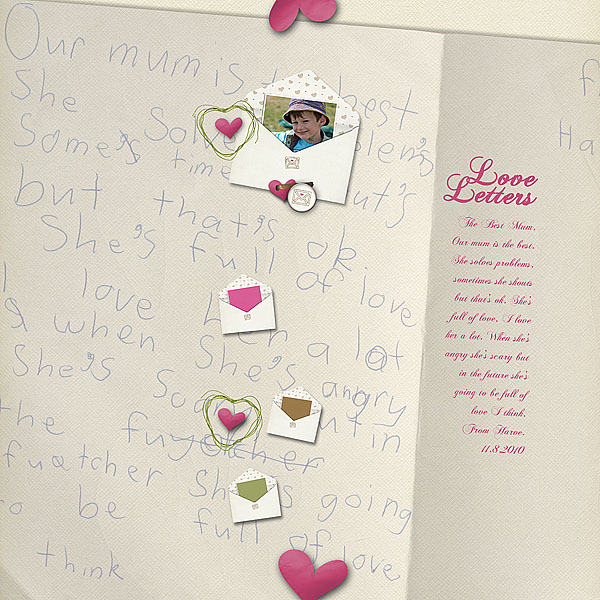 Our mum is the best
She Solves problem's
Some's time shout's
but that's ok
She's full of love
I love her a lot
& when She's angry
She's Scary but in
the fu futcher
fuatcher She's going
to be full of love
I think
Love
Letters
The Best Mum.
Our mum is the best.
She solves problems,
sometimes she shouts
but that's ok. She's
full of love. I love
her a lot. When she's
angry she's scary but
in the future she's
going to be full of
love I think.
From Harve.
11.8.2010